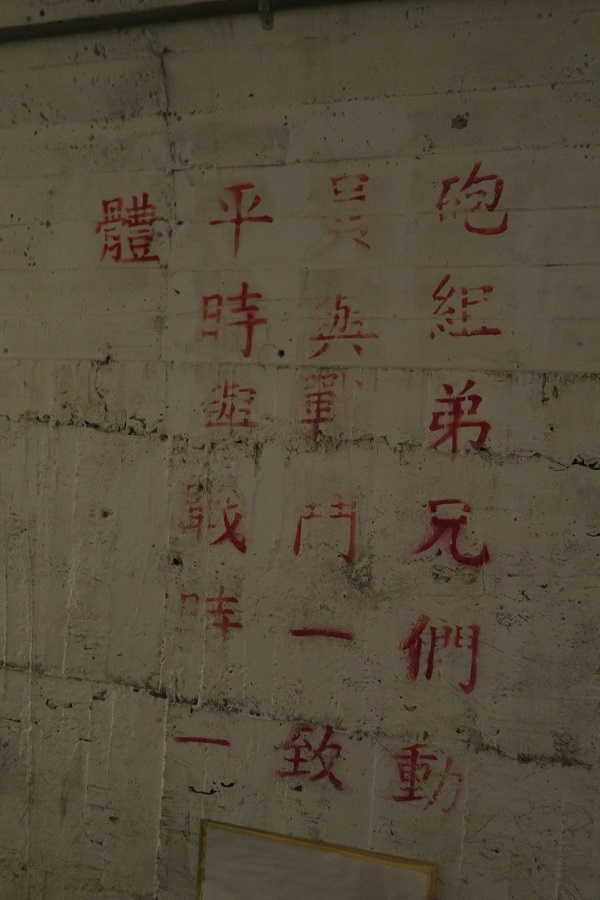 砲組弟兄們動
員與戰鬥一致
平時與戰時一
體